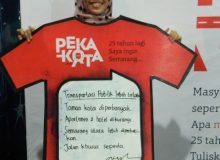 PEKA
-KOTA
25 tahun lagi
Saya ingin
Semarang....
Transportasi Publik lebih
Taman kota diperbanyak
Apartemen & hotel dikurangi
Semarang utara lebih
Jalan khusus sepeda
Masy
seper
Apa
25 tah
Tulisk